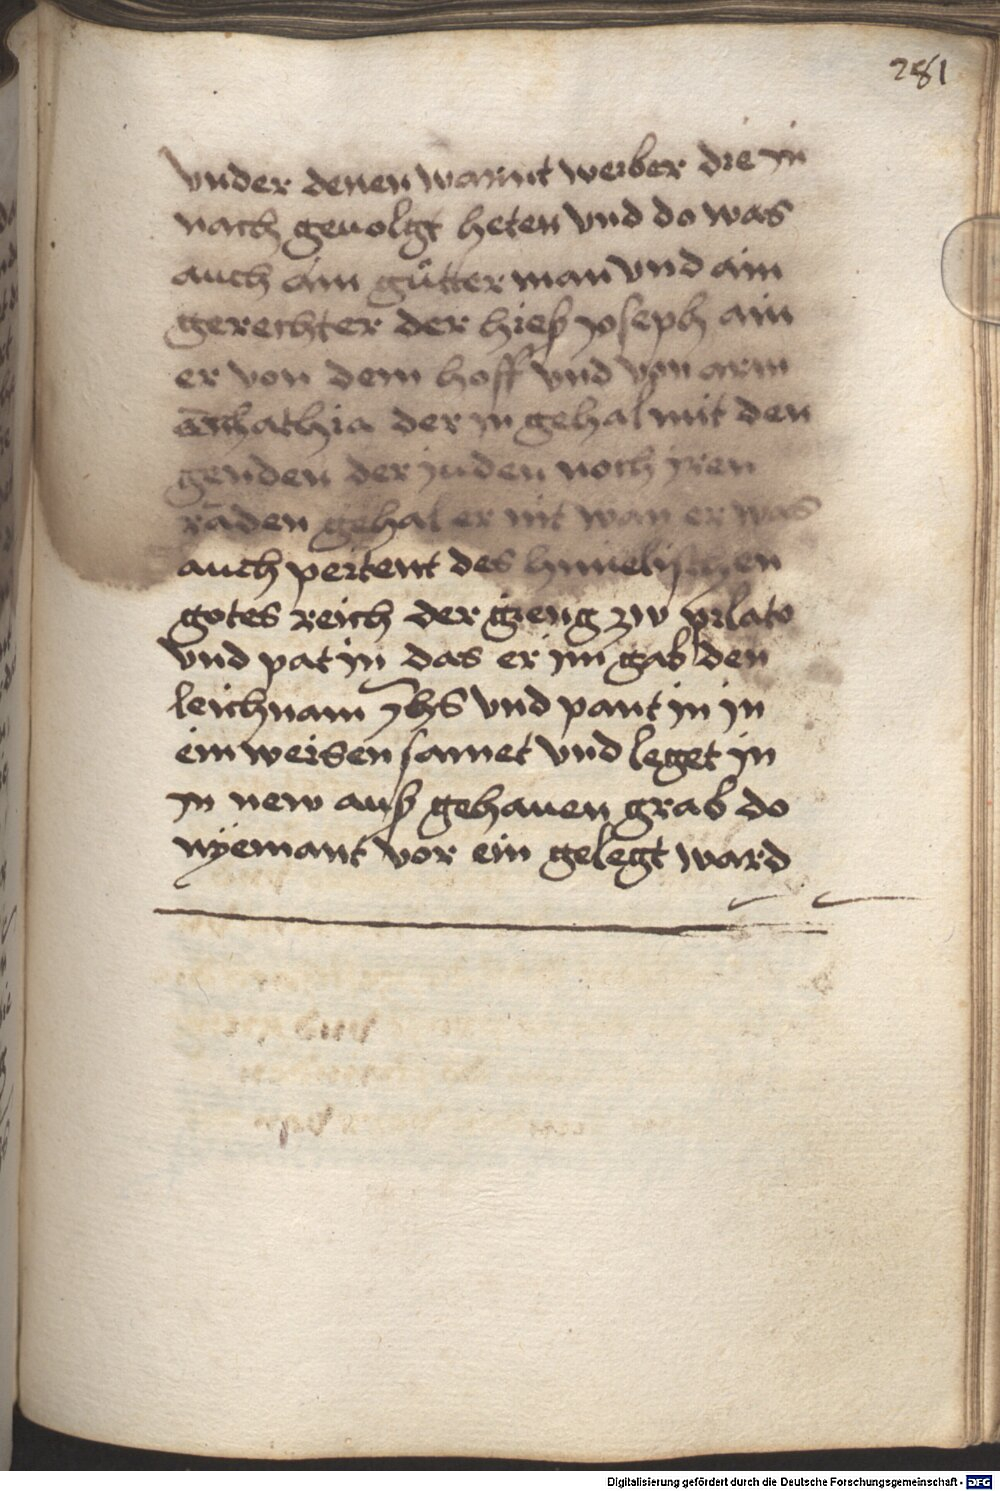 281
vnder denen warnt weiber die in
nach geuolgt heten vnd do was
auch ain gůtter man vnd ain
gerechter der hieß yoseph ain
er von dem hoff vnd von arm
der in gehal mit den
genden der juden noch jren
räden gehal er nit wan er was
auch peitent des himelischen
gotes reich der gieng zw pilato
vnd pat in das er im gab den
leichnam yhs vnd pant in in
ein weisen samet vnd leget in
in new auß gehauen grab do
nyemant vor ein gelegt ward
Digitalisierung gefördert durch die Deutsche Forschungsgemeinschaft - DFG